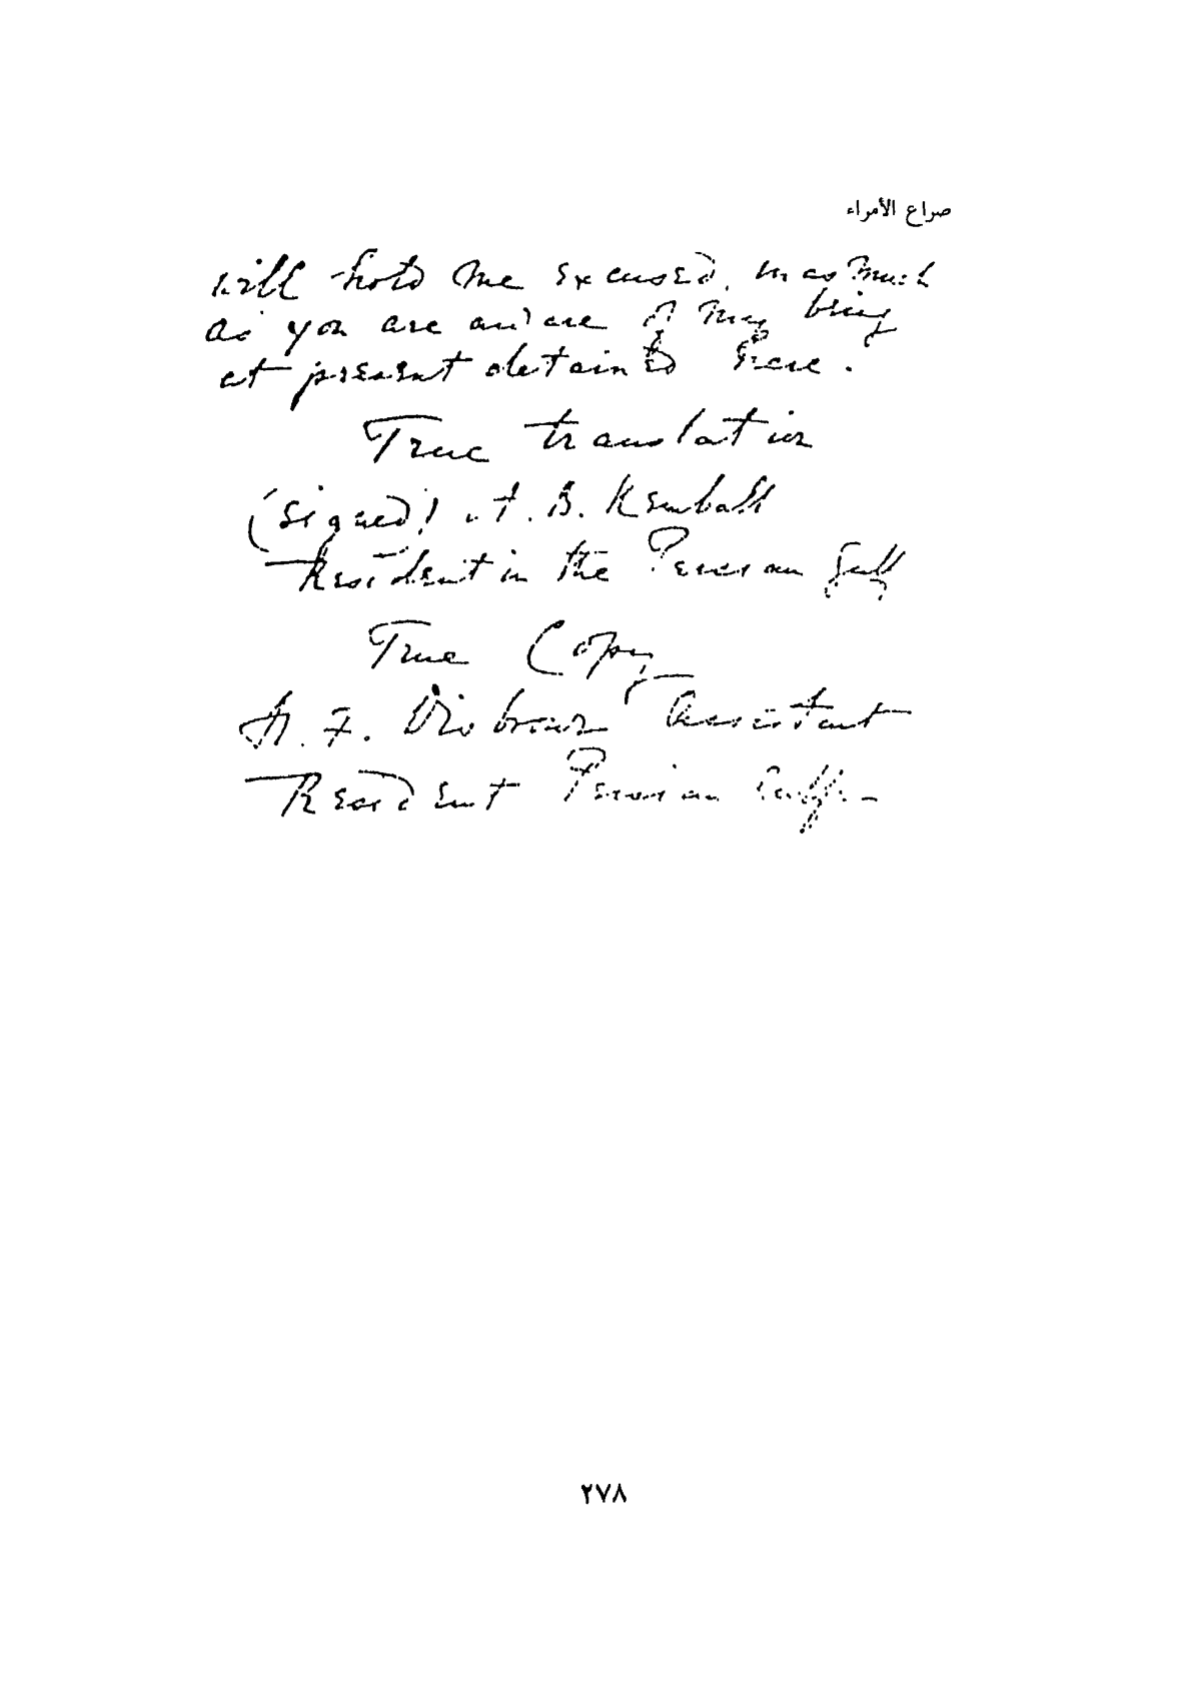 صراع الأمراء
will hold me excused, in as much
as you are aware of my being
at present detained here.
True translation
(signed) A. B. Kemball
Resident in the Persian Gulf
True Copy
H. F. Disbrowe Assistant
Resident Persian Gulf.-
٢٧٨